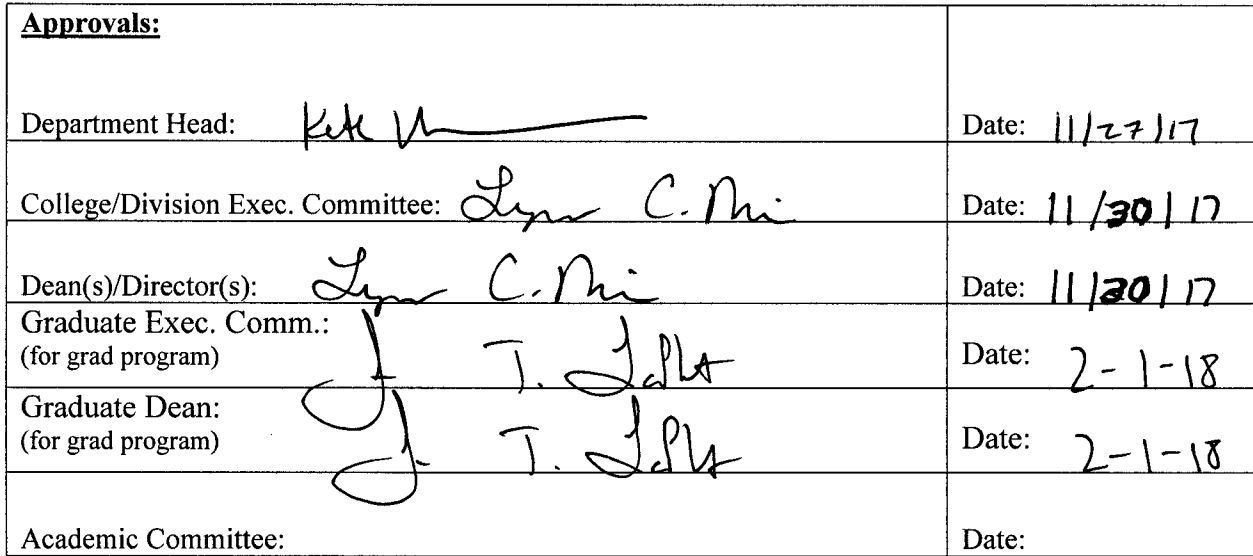 Approvals:
Department Head: Date: 11/27/17
College/Division Exec. Committee: Lynn C. Date: 11/30/17
Dean(s)/Director(s): Lynn C. Date: 11/30/17
Graduate Exec. Comm.:
(for grad program) J. T. Date: 2-1-18
Graduate Dean:
(for grad program) J. T. Date: 2-1-18
Academic Committee: Date: